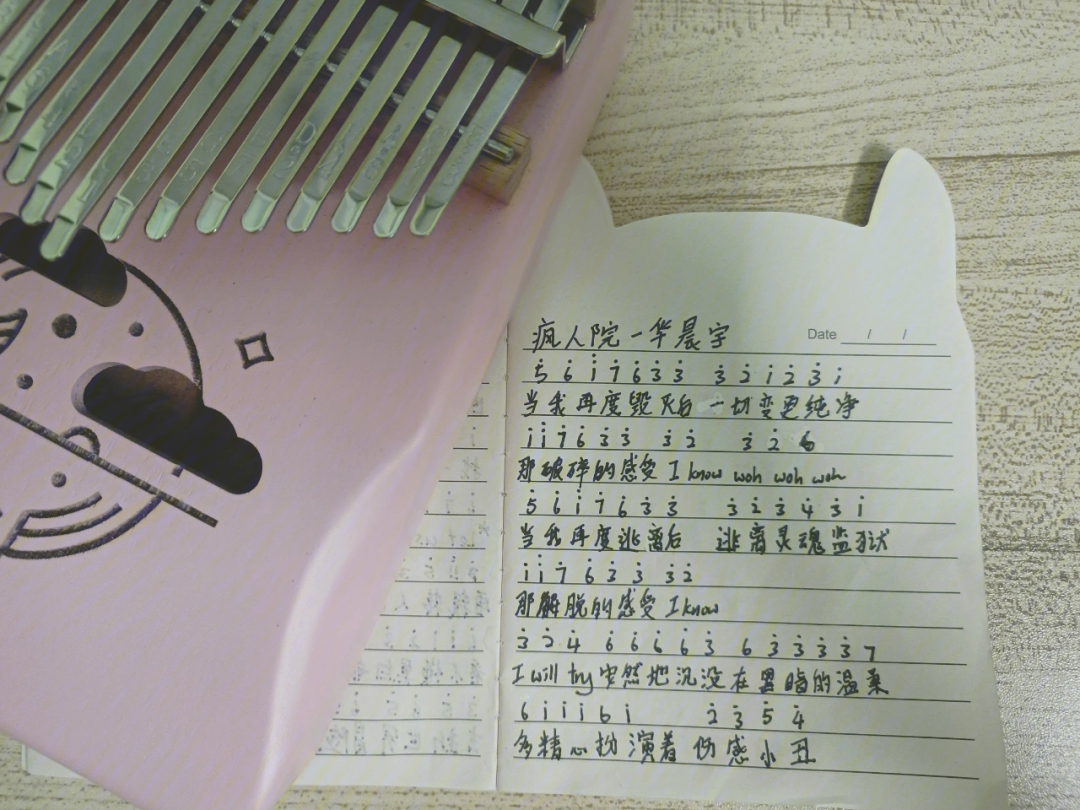 疯人院-华晨宇
Date / /
5̇ 6̇ i 7̇ 6̇ 3̇ 3̇ 3̇ 2̇ i 2̇ 3̇ i
当我再度毁灭后 一切变更纯净
i i 7̇ 6̇ 3̇ 3̇ 3̇ 2̇ 3̇ 2̇ 6
那破碎的感受 I know woh woh woh
5̇ 6̇ i 7̇ 6̇ 3̇ 3̇ 3̇ 2̇ 3̇ 4̇ 3̇ i
当我再度逃离后 逃离灵魂监狱
i i 7̇ 6̇ 3̇ 3̇ 3̇ 2̇
那解脱的感受 I know
3̇ 2̇ 4̇ 6̇ 6̇ 6̇ 6̇ 3̇ 6̇ 3̇ 3̇ 3̇ 3̇ 7
I will try 安然地沉没在黑暗的温柔
6 i i i 6 i 2̇ 3̇ 5̇ 4̇
多精心扮演着 伤感小丑